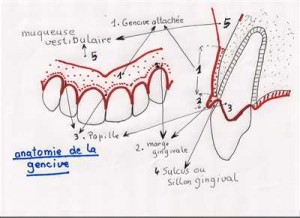 1. Gencive attachée
5
muqueuse
vestibulaire
5
1
1
2
3
3. Papille
2. marge
gingivale
4. Sulcus ou
Sillon gingival
anatomie de la
gencive